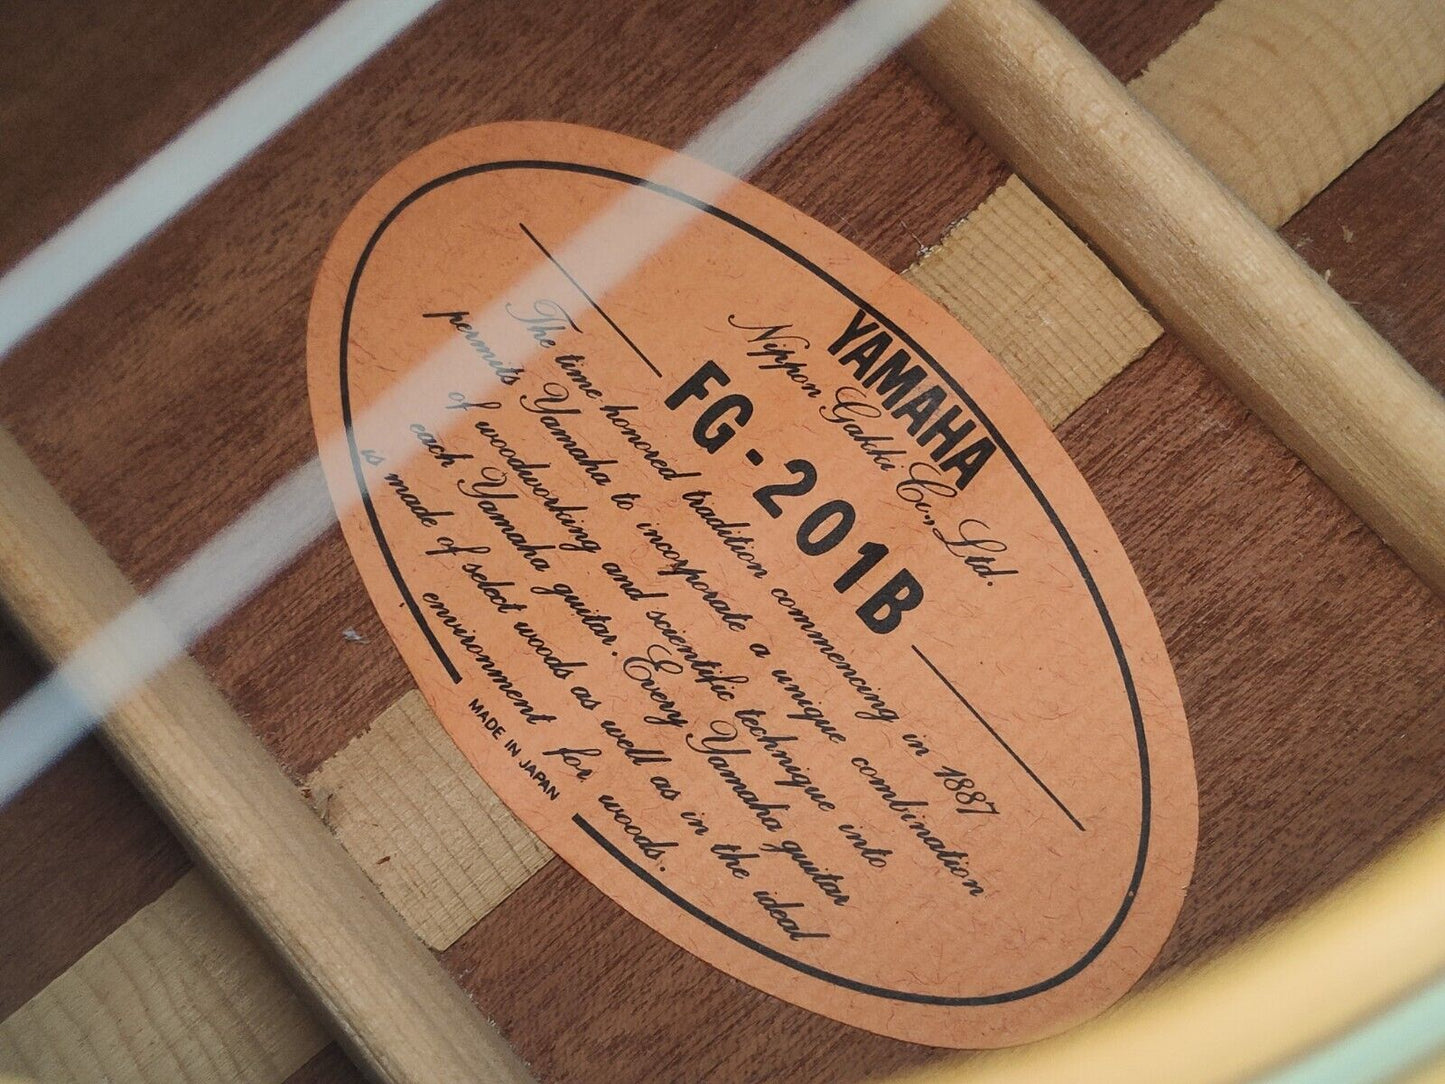 YAMAHA
Nippon Gakki Co., Ltd.
FG-201B
The time honored tradition commencing in 1887
permits Yamaha to incorporate a unique combination
of woodworking and scientific technique into
each Yamaha guitar. Every Yamaha guitar
is made of select woods as well as in the ideal
environment for woods.
MADE IN JAPAN